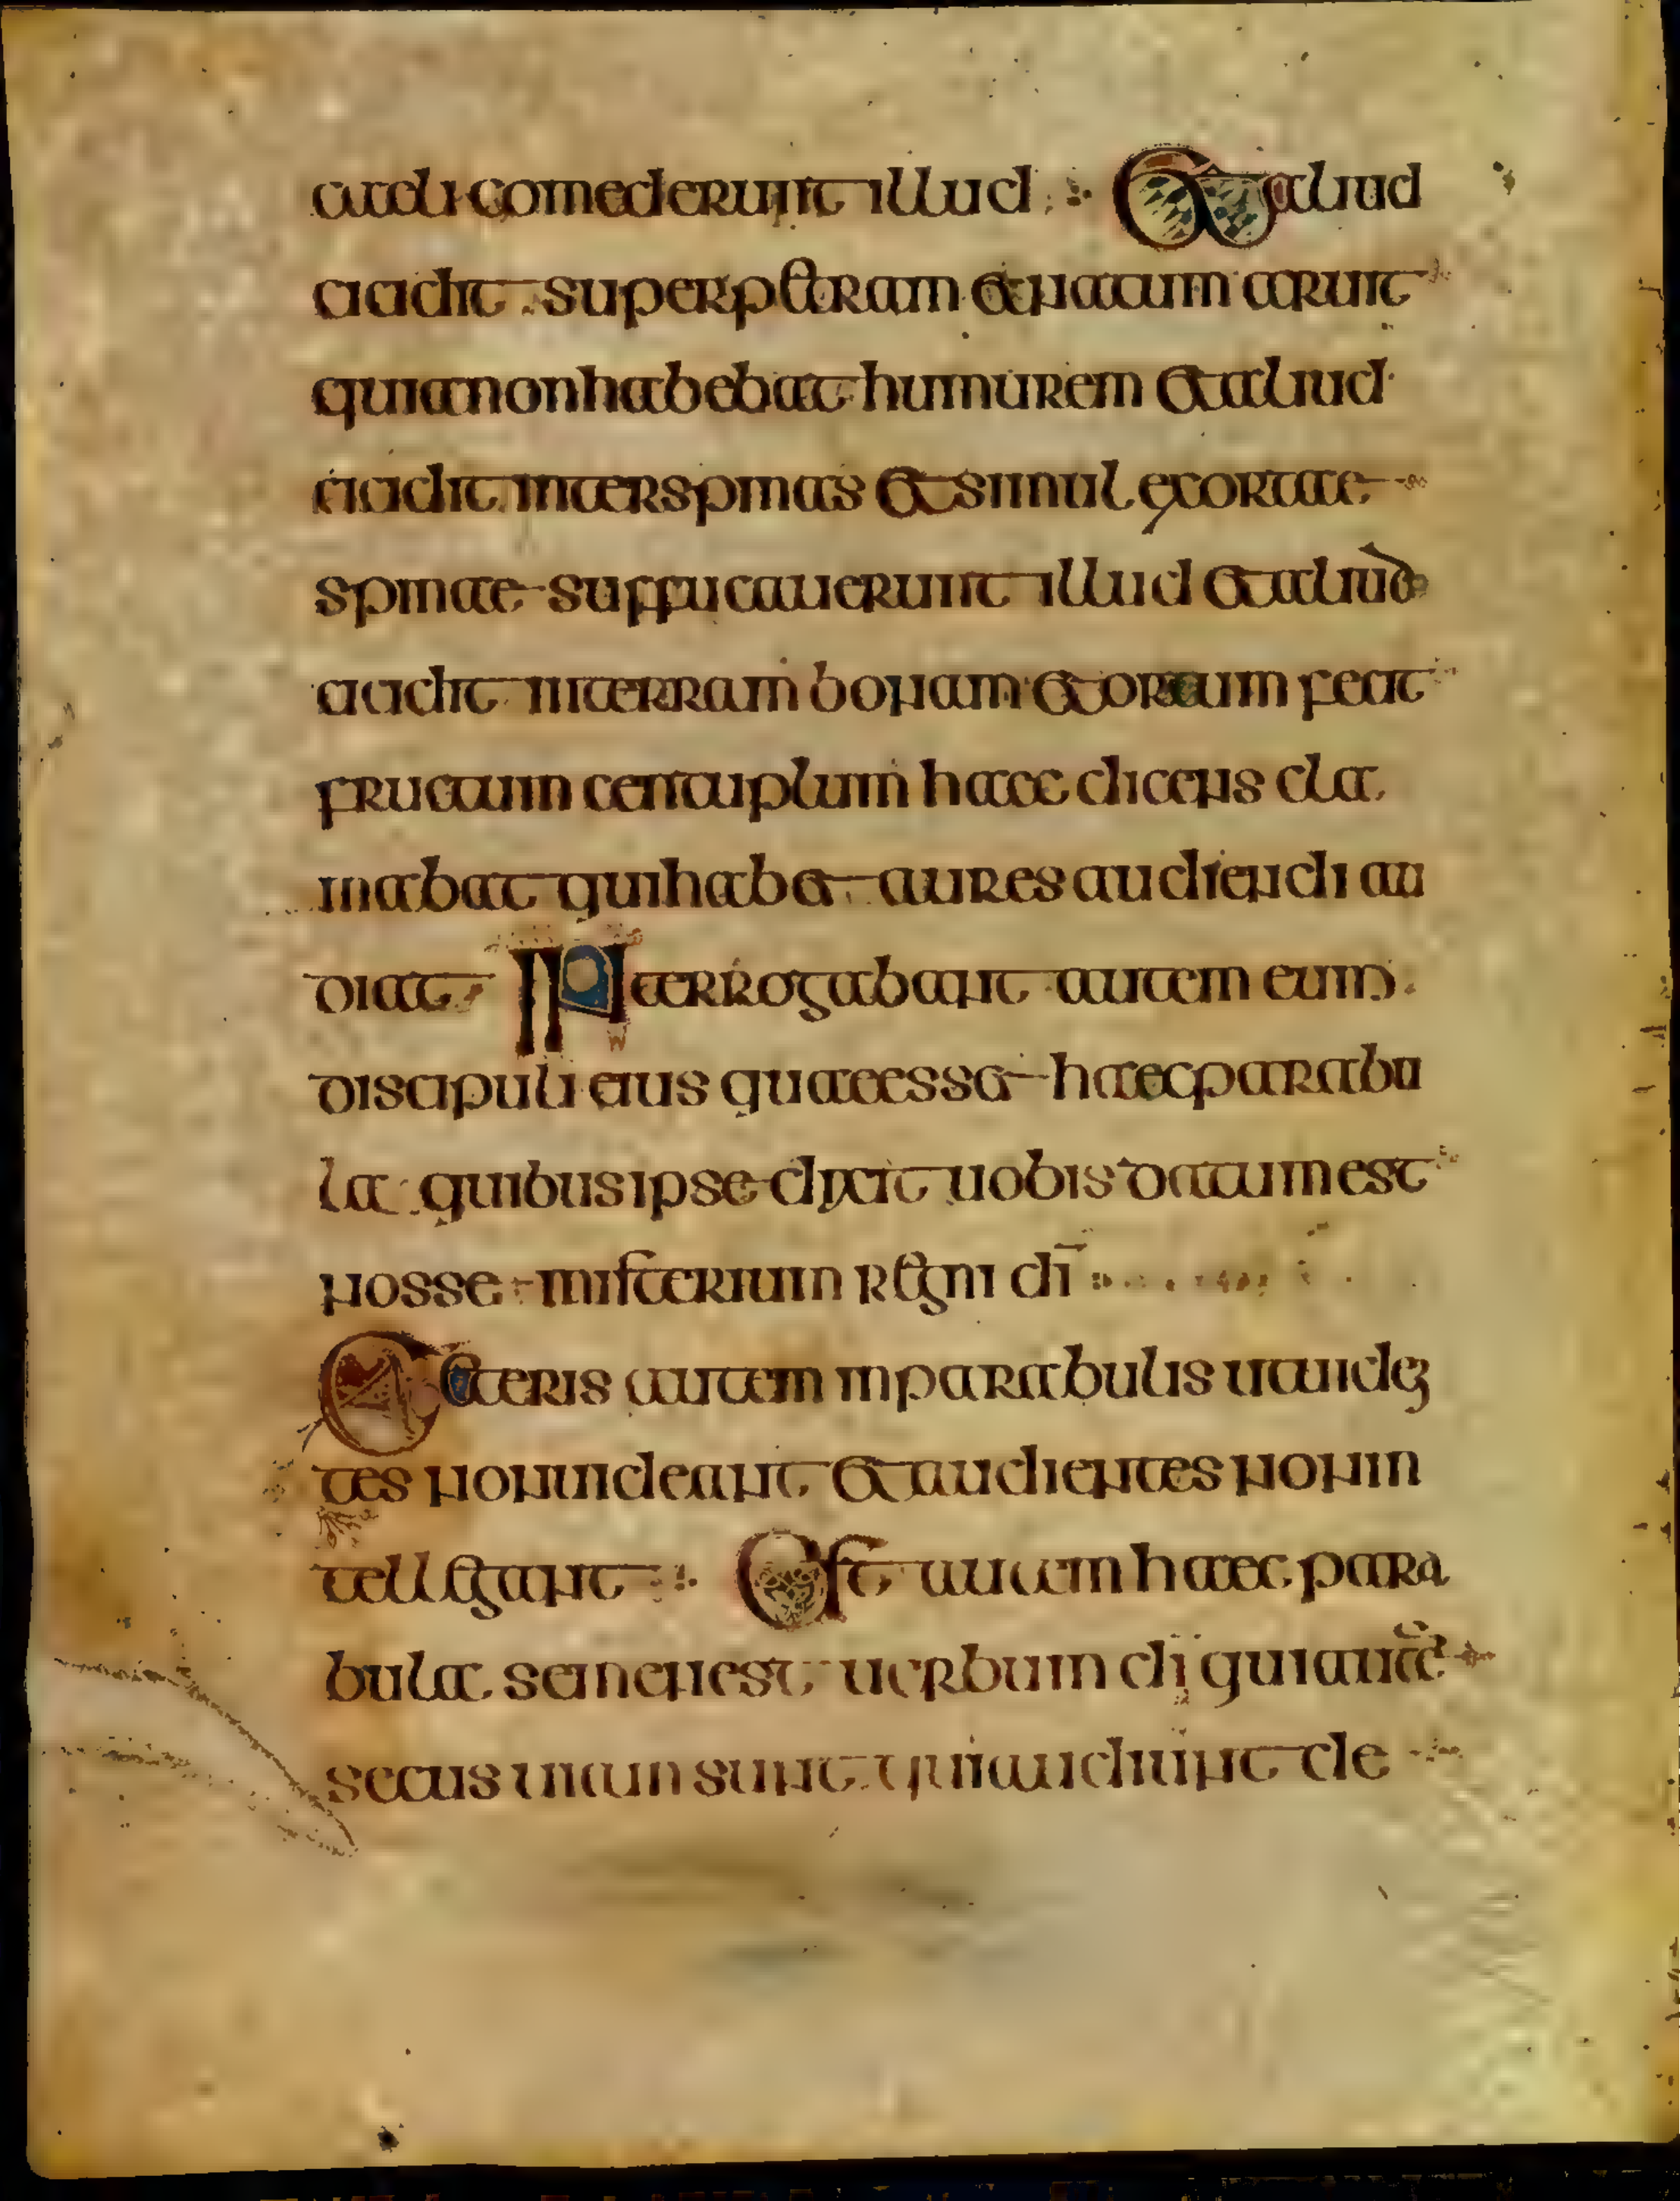 caeli comederunt illud Et aliud
cicidit super petram et natum aruit
quia non habebat humurem et aliud
cicidit inter spinas et simul exortae
spinae suffucauerunt illud et aliud
cicidit in terram bonam et ortum fecit
fructum centuplum haec dicens cla
mabat qui habet aures audiendi au
diat Interrogabant autem eum
discipuli eius quae esset haec parabu
la quibus ipse dixit uobis datum est
nosse misterium regni dī
Ceteris autem in parabulis ut uiden
tes non uideant et audientes non in
tellegant Est autem haec para
bula semen est uerbum di qui autē
secus uiam sunt qui audiunt de